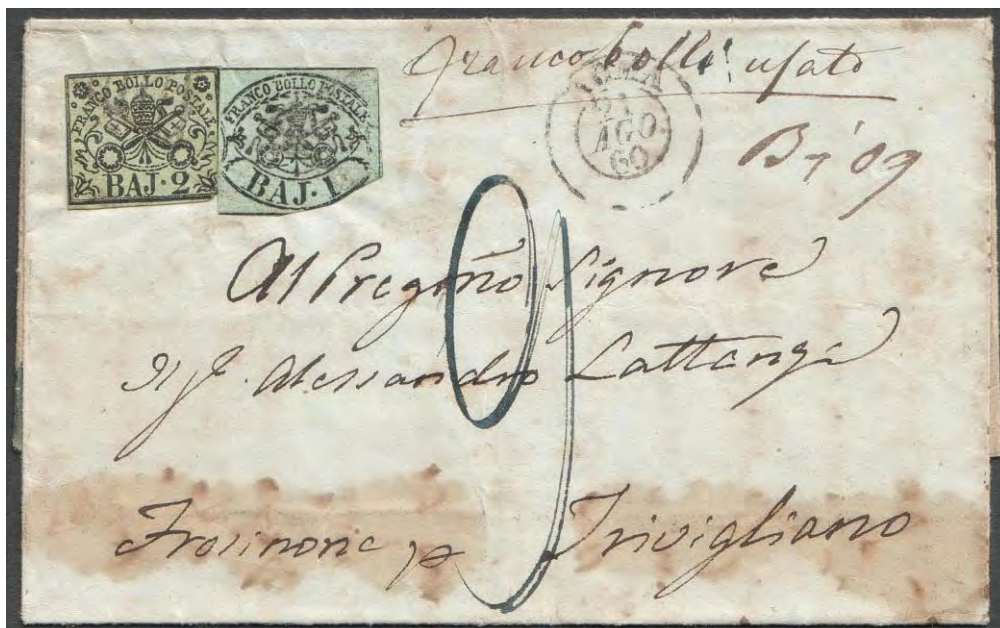 FRANCO BOLLO POSTALE
BAJ. 2
FRANCO BOLLO POSTALE
BAJ. 1
Franco bolli usato
ROMA
21
AGO
60
B 7 09
9
Al Pregmo Signore
Il Sr. Alessandro Lattanzi
Frosinone p Trivigliano